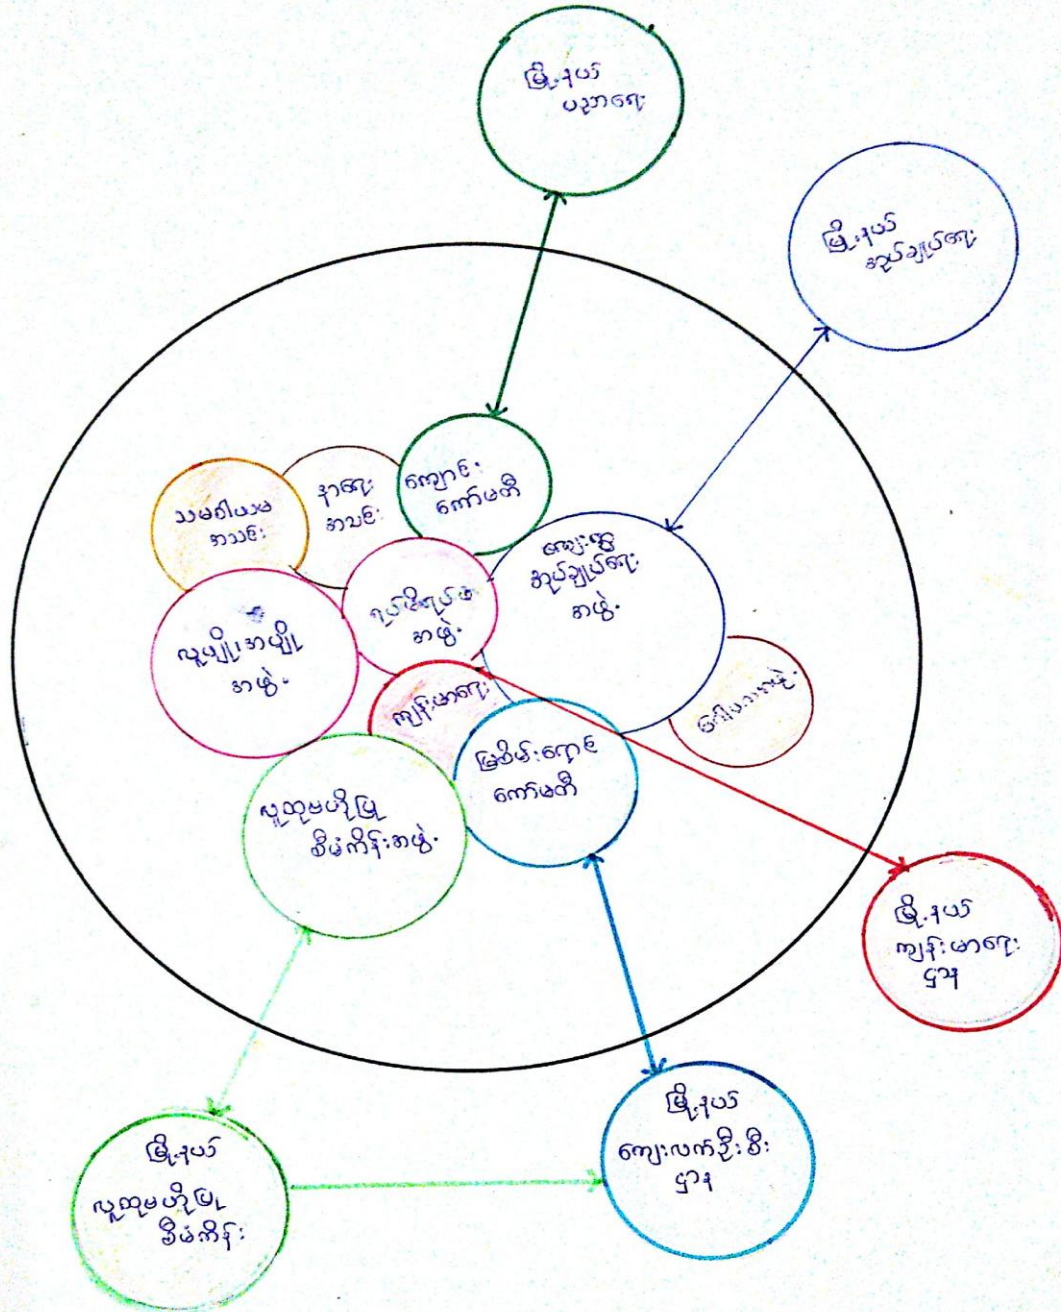 မြို့နယ်
ပညာရေး
မြို့နယ်
အုပ်ချုပ်ရေး
ကျောင်း
ကော်မတီ
နာရေး
အသင်း
သမဝါယမ
အသင်း
ကျေးရွာ
အုပ်ချုပ်ရေး
အဖွဲ့
ရပ်မိရပ်ဖ
အဖွဲ့
လူပျို၊အပျို
အဖွဲ့
ကျန်းမာရေး
မြစိမ်းရောင်
ကော်မတီ
လူထုဗဟိုပြု
စီမံကိန်းအဖွဲ့
မြို့နယ်
ကျန်းမာရေး
ဌာန
မြို့နယ်
ကျေးလက်ဦးစီး
ဌာန
မြို့နယ်
လူထုဗဟိုပြု
စီမံကိန်း